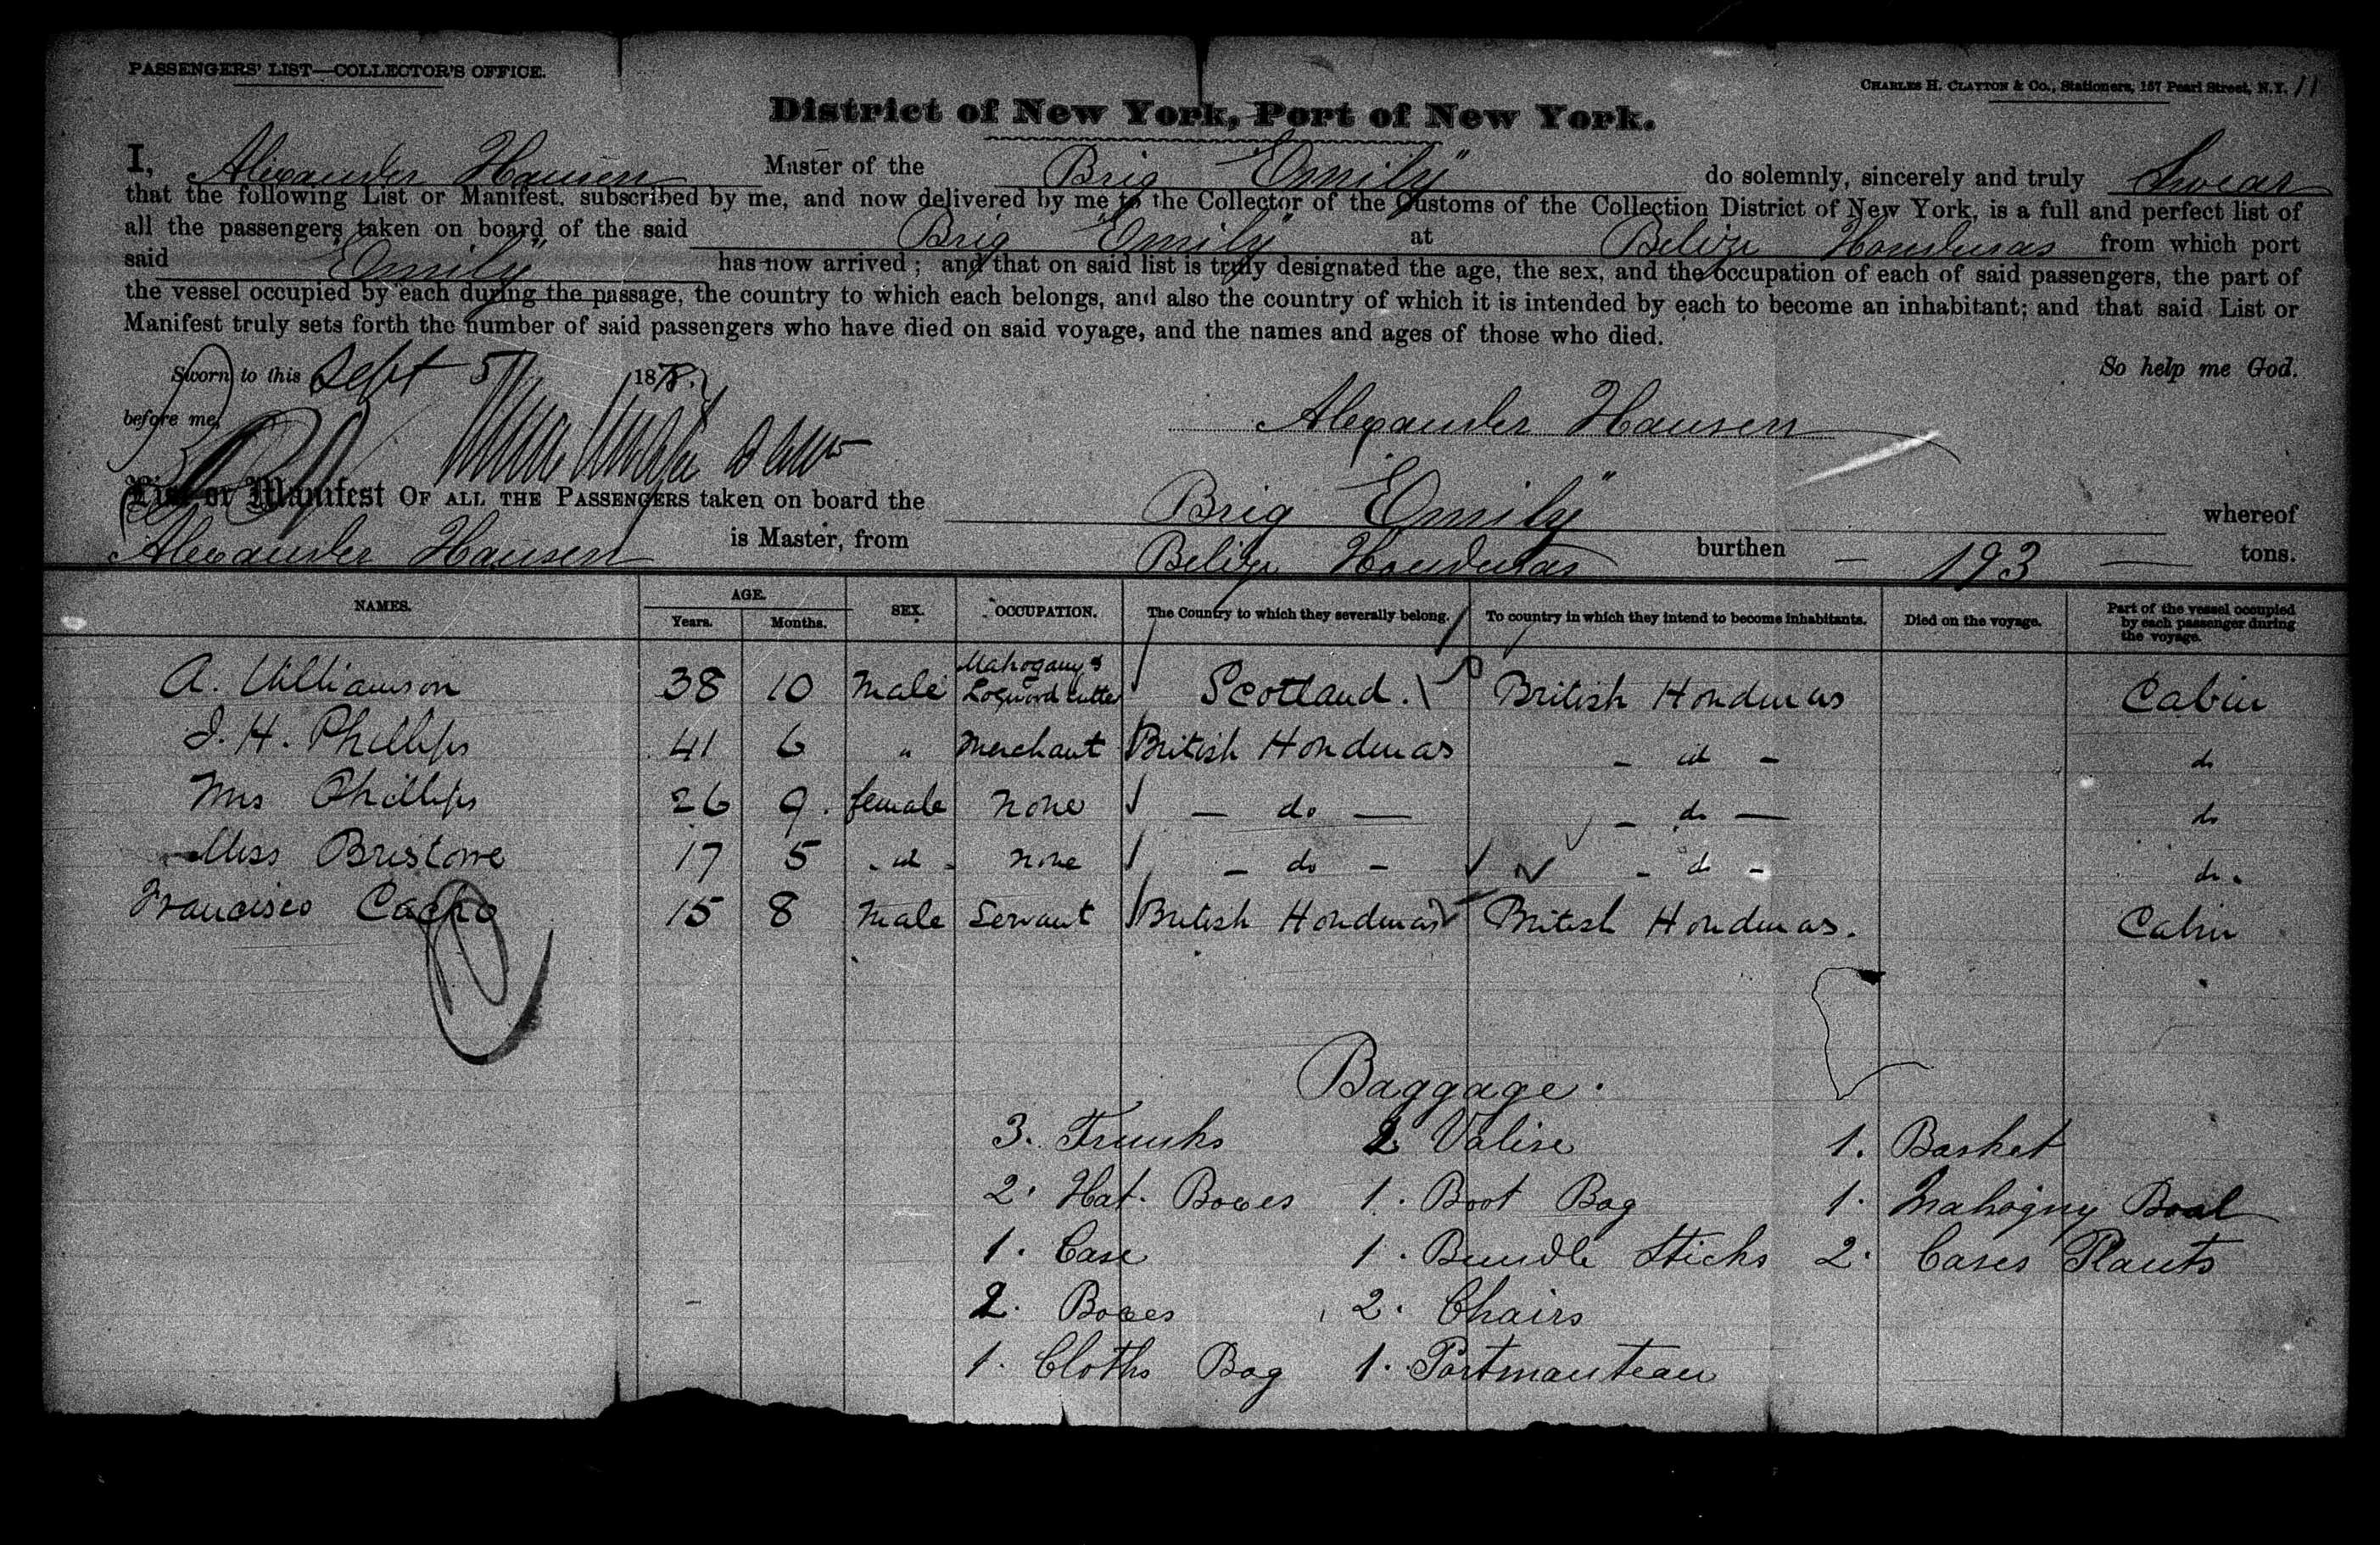 PASSENGERS' LIST—COLLECTOR'S OFFICE.
CHARLES H. CLAYTON & Co., Stationers, 157 Pearl Street, N.Y. 11
District of New York, Port of New York.
I, Alexander Hansen Master of the Brig "Emily" do solemnly, sincerely and truly Swear
that the following List or Manifest. subscribed by me, and now delivered by me to the Collector of the Customs of the Collection District of New York, is a full and perfect list of
all the passengers taken on board of the said Brig "Emily" at Belize Honduras from which port
said "Emily" has now arrived; and that on said list is truly designated the age, the sex, and the occupation of each of said passengers, the part of
the vessel occupied by each during the passage, the country to which each belongs, and also the country of which it is intended by each to become an inhabitant; and that said List or
Manifest truly sets forth the number of said passengers who have died on said voyage, and the names and ages of those who died.
Sworn to this Sept 5 1878. So help me God.
before me, Alexander Hansen
List or Manifest OF ALL THE PASSENGERS taken on board the Brig "Emily" whereof
Alexander Hansen is Master, from Belize Honduras burthen — 193 — tons.
NAMES. AGE. Years. Months. SEX. OCCUPATION. The Country to which they severally belong. To country in which they intend to become inhabitants. Died on the voyage. Part of the vessel occupied by each passenger during the voyage.
A. Williamson 38 10 Male Mahogany & Logwood cutter Scotland. British Honduras Cabin
J. H. Phillips 41 6 " Merchant British Honduras - id - do
Mrs Phillips 26 9. female None — do — - do — do
Miss Bristowe 17 5 - id - None - do - - do - do.
Francisco Cacho 15 8 Male Servant British Honduras British Honduras. Cabin
Baggage.
3. Trunks 2 Valise 1. Basket
2. Hat. Boxes 1. Boot Bag 1. Mahogny Boat
1. Case 1. Bundle Sticks 2. Cases Plants
2. Boxes 2. Chairs
1. Cloths Bag 1. Portmanteau